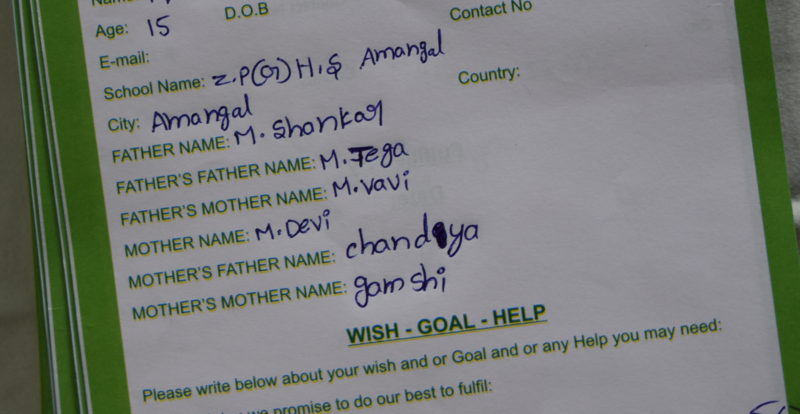 Name:
Age: 15 D.O.B Contact No
E-mail:
School Name: Z.P(G) H.S Amangal
City: Amangal Country:
FATHER NAME: M. Shankar
FATHER'S FATHER NAME: M. Tega
FATHER'S MOTHER NAME: M. vavi
MOTHER NAME: M. Devi
MOTHER'S FATHER NAME: chandya
MOTHER'S MOTHER NAME: gamshi
WISH - GOAL - HELP
Please write below about your wish and or Goal and or any Help you may need:
we promise to do our best to fulfil: